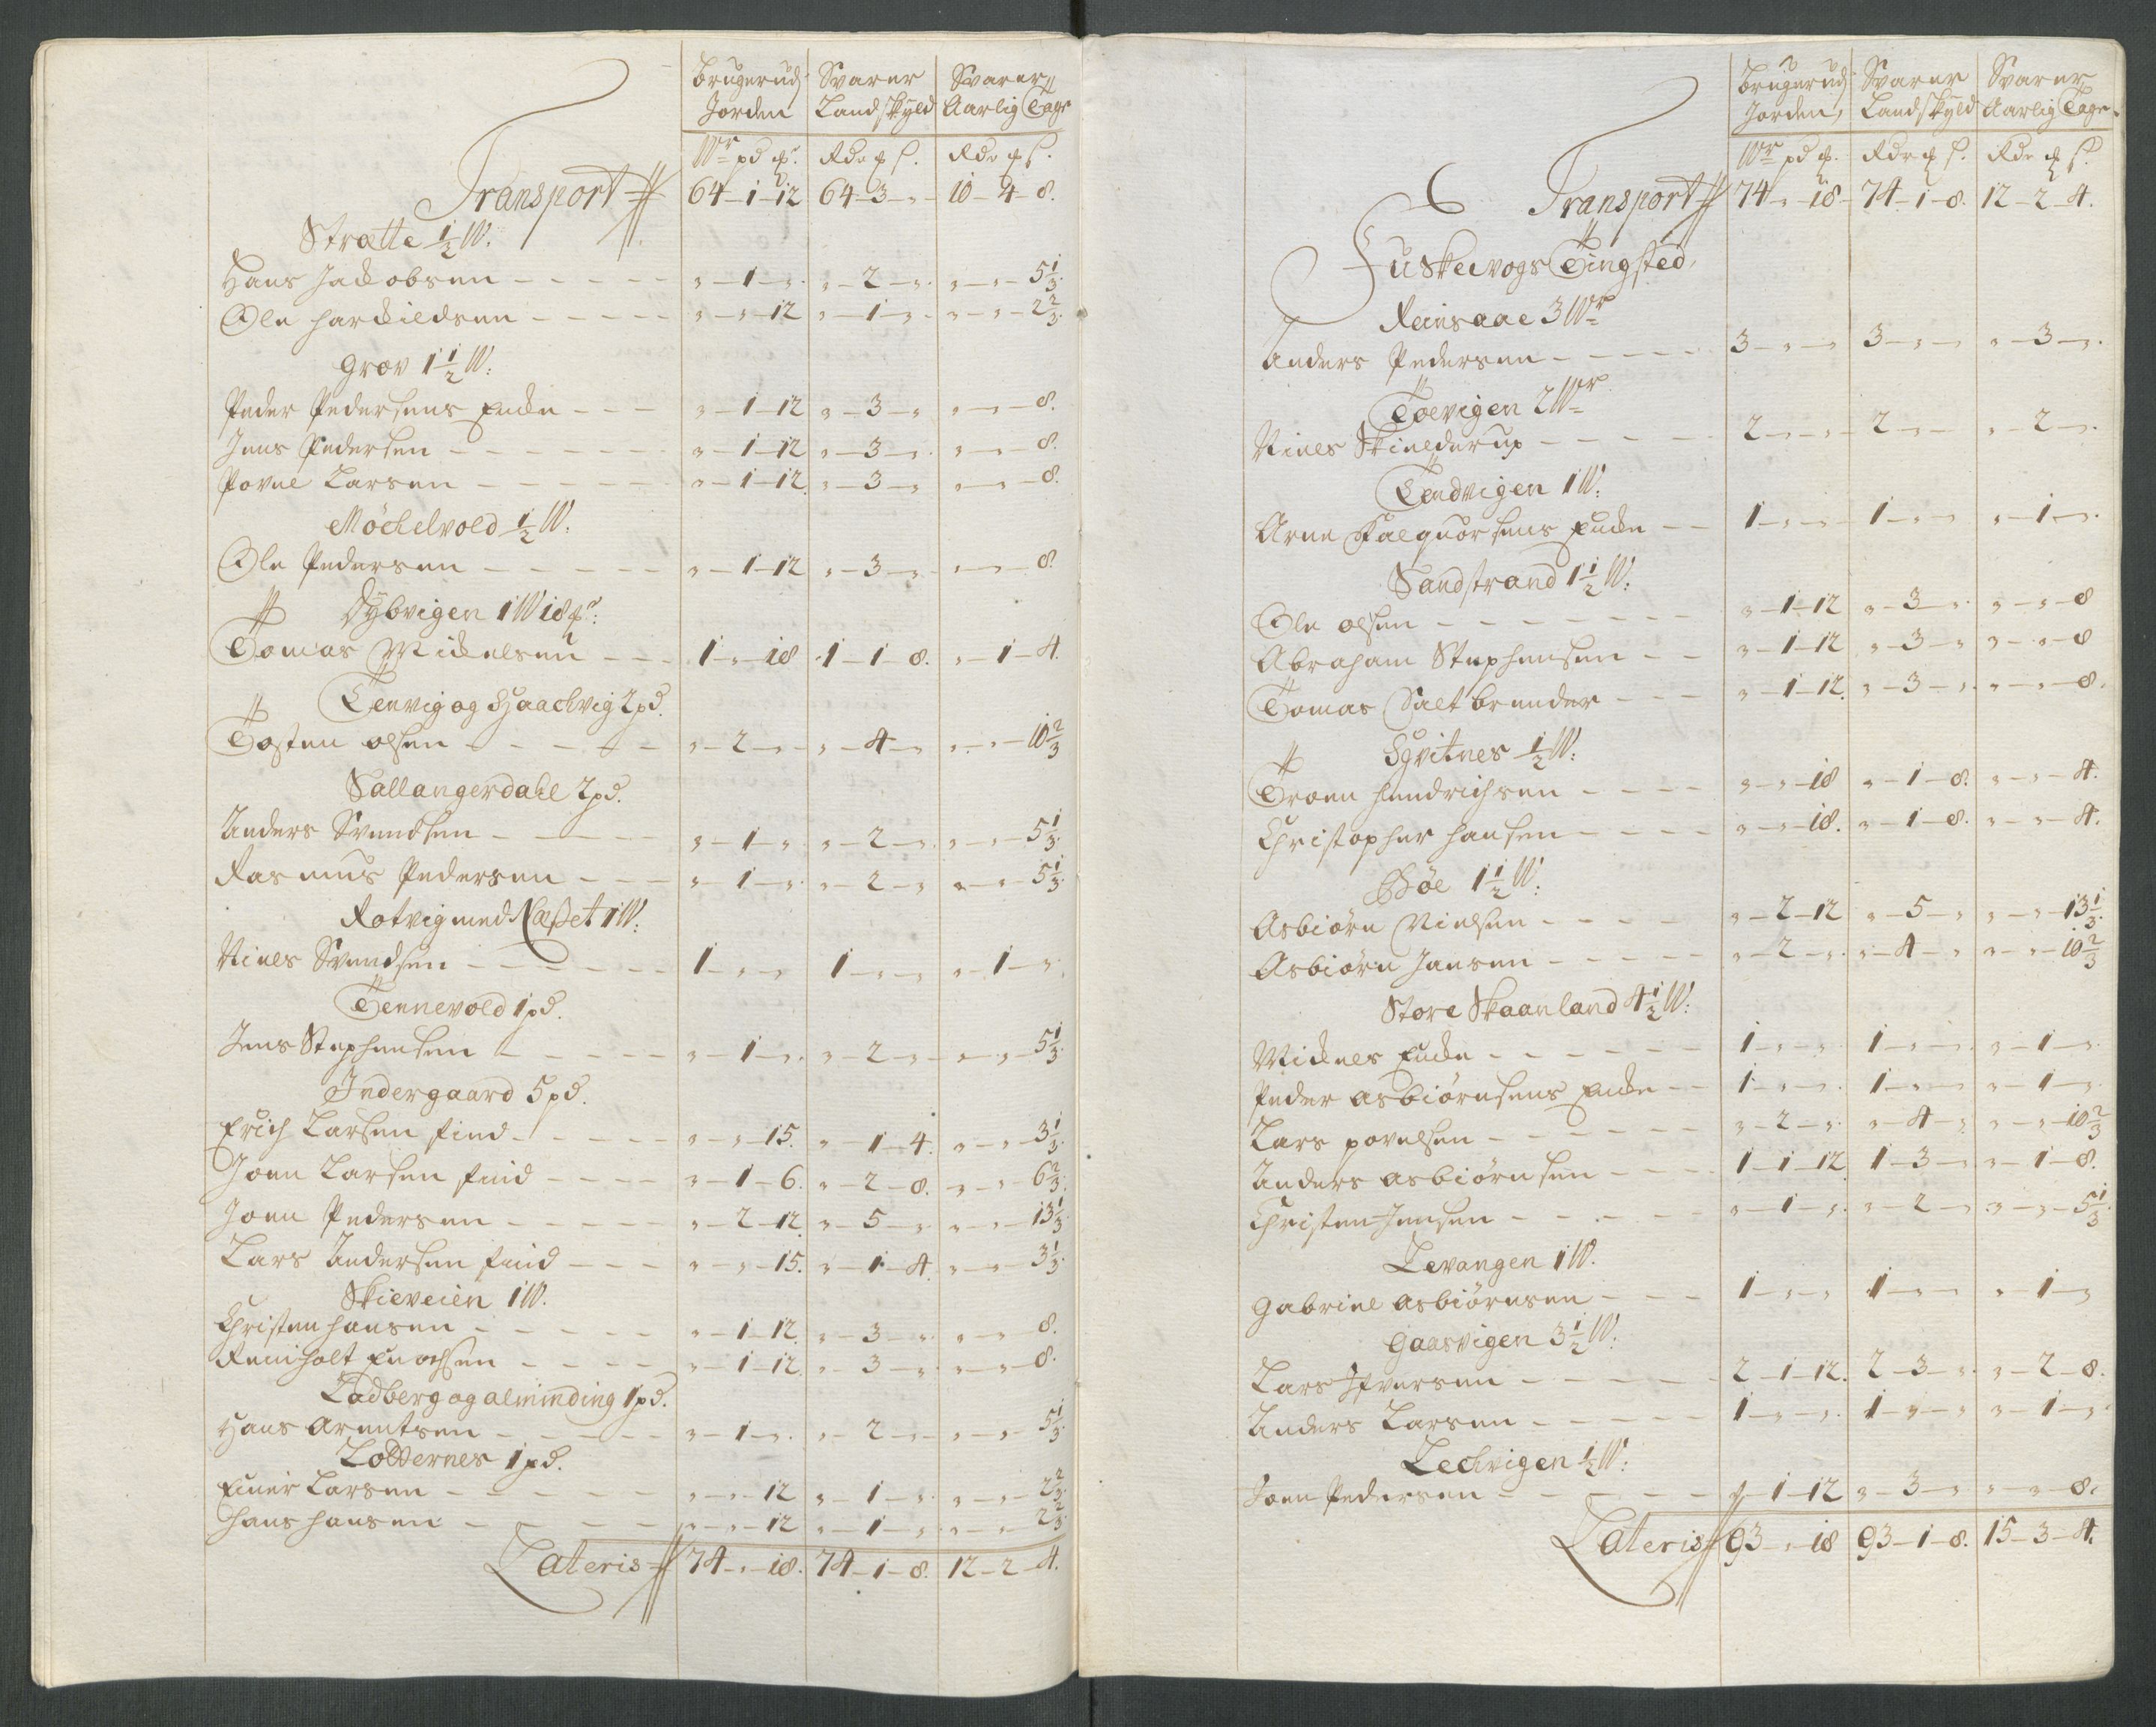 Brugerud Svarer Svarer
Jorden Landskyld Aarlig Tage
W pd ℔. Rdr ℔ s. Rdr ℔ s.
Transport 64–1–12 64–3–„ 10–4–8.
Strætte ½ W.
Hans Jacobsen „–1–„. „–2–„. „–„–5⅓.
Ole Harchildsen „–„–12 „–1–„. „–„–2⅔.
Grov 1½ W:
Peder Pedersens Encke „–1–12 „–3–„ „–„–8.
Jens Pedersen „–1–12 „–3–„. „–„–8.
Povel Larsen „–1–12. „–3–„ „–„–8.
Møchelvold ½ W:
Ole Pedersen „–1–12 „–3–„. „–„–8.
Dybvigen 1 W 18 ℔:
Tomas Michelsen 1–„–18 1–1–8. „–1–4.
Tenvig og Haachvig 2 pd.
Tosten olsen „–2–„ „–4–„ „–„–10⅔
Sallangerdall 2 pd.
Anders Svendsen „–1–„. „–2–„. „–„–5⅓.
Rasmus Pedersen „–1–„. „–2–„ „–„–5⅓.
Rotvig med Næsset 1 W:
Niels Svendsen 1–„–„ 1–„–„ „–1–„.
Tennevold 1 pd.
Jens Stephensen „–1–„. „–2–„ „–„–5⅓.
Indergaard 5 pd.
Erich Larsen find „–„–15. „–1–4. „–„–3⅓.
Joen Larsen find „–1–6. „–2–8. „–„–6⅔.
Joen Pedersen „–2–12. „–5–„ „–„–13⅓.
Lars Andersen find „–„–15. „–1–4. „–„–3⅓.
Skieveien 1 W.
Christen Hansen „–1–12. „–3–„. „–„–8.
Reinholt Enochsen „–1–12. „–3–„ „–„–8.
Ladberg og alminding 1 pd.
Hans Arentsen „–1–„. „–2–„ „–„–5⅓.
Loddernes 1 pd.
Einer Larsen „–„–12 „–1–„. „–„–2⅔.
Hans Hansen „–„–12 „–1–„ „–„–2⅔.
Lateris 74–„–18. 74–1–8. 12–2–4.
Brugerud Svarer Svarer
Jorden, Landskyld Aarlig Tage.
W pd ℔. Rdr ℔ s. Rdr ℔ s.
Transport 74–„–18. 74–1–8. 12–2–4.
Fuskevogs Tingsted,
Reinsaae 3 W
Anders Pedersen 3–„–„ 3–„–„ „–3–„.
Toevigen 2 W
Niels Skielderup 2–„–„ 2–„–„ „–2–„.
Tendvigen 1 W:
Arne Falquorsens Encke 1–„–„ 1–„–„ „–1–„.
Sandstrand 1½ W:
Ole olsen „–1–12 „–3–„. „–„–8
Abraham Stephensen „–1–12 „–3–„ „–„–8
Tomas Saltbrender „–1–12. „–3–„. „–„–8.
Hvitnes ½ W:
Troen Hendrichsen „–„–18 „–1–8. „–„–4.
Christopher Hansen „–„–18. „–1–8. „–„–4.
Bøe 1½ W:
Asbiørn Nielsen „–2–12 „–5–„ „–„–13⅓.
Asbiørn Jansen „–2–„. „–4–„ „–„–10⅔
Store Skaanland 4½ W:
Michels Encke 1–„–„. 1–„–„. „–1–„.
Peder Asbiørnsens Encke 1–„–„. 1–„–„ „–1–„.
Lars povelsen „–2–„. „–4–„. „–„–10⅔
Anders asbiørnsen 1–1–12. 1–3–„ „–1–8.
Christen Jensen „–1–„. „–2–„ „–„–5⅓.
Levangen 1 W.
Gabriel asbiørnsen 1–„–„ 1–„–„ „–1–„
Gaasvigen 3½ W:
Lars Ifversen 2–1–12. 2–3–„. „–2–8.
Anders Larsen 1–„–„. 1–„–„ „–1–„.
Lechvigen ½ W:
Joen Pedersen „–1–12 „–3–„ „–„–8.
Lateris 93–„–18 93–1–8. 15–3–4.